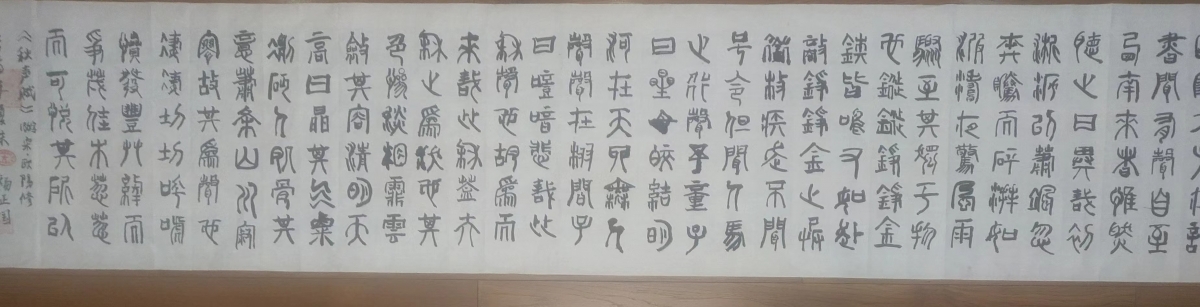 書聞有聲自至
南來者惟然
聽之曰異哉初
淅瀝以蕭颯忽
奔騰而砰湃如
波濤夜驚風雨
驟至其觸于物
也鏦鏦錚錚金
鐵皆鳴又如赴
敵錚錚金之
銜枚疾走不聞
号令但聞人馬
之行聲予童子
曰星月皎結明
河在天四無人
聲聲在樹間予
曰噫噫悲哉此
秋聲也胡為而
來哉此秋蓋夫
秋之為狀也其
色慘淡烟霏雲
斂其容清明天
高日晶其氣栗
冽砭人肌骨其
意蕭條山川寂
寥故其為聲也
淒淒切切呼號
憤發豐艸綠而
爭茂佳木蔥蔥
而可悅其所以
秋聲賦 宋歐陽修